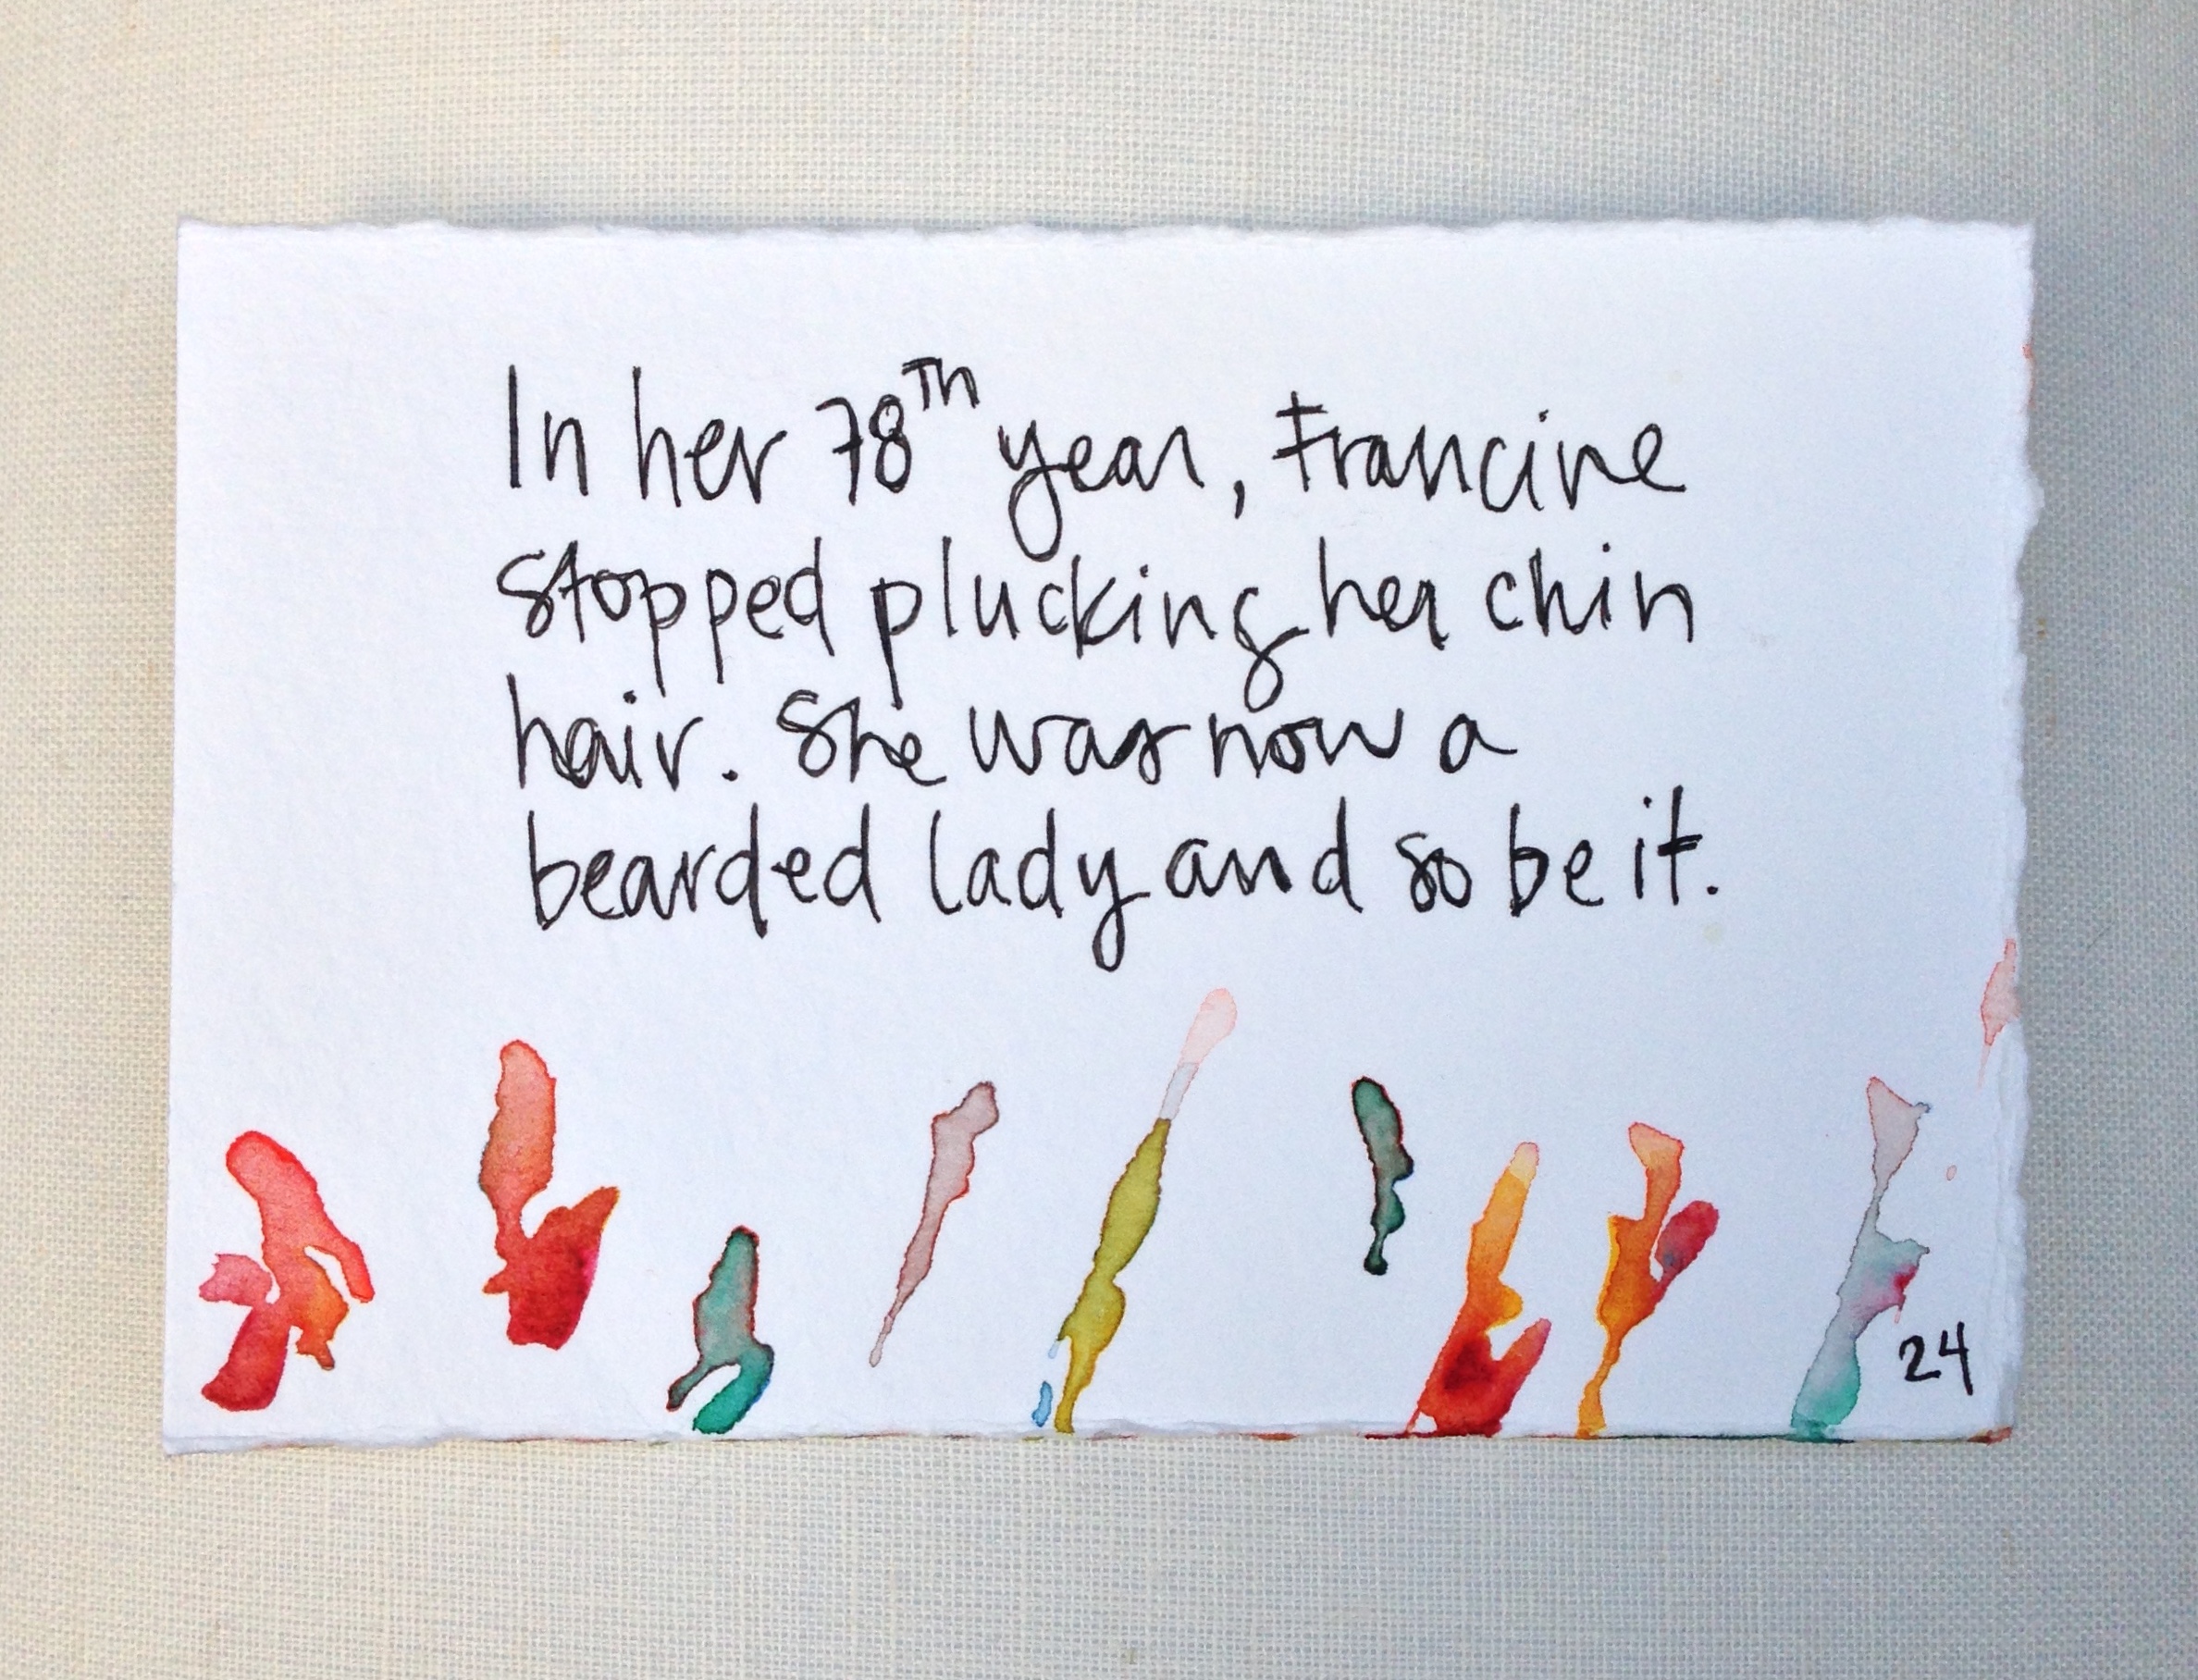 In her 78th year, Francine
stopped plucking her chin
hair. She was now a
bearded lady and so be it.
24